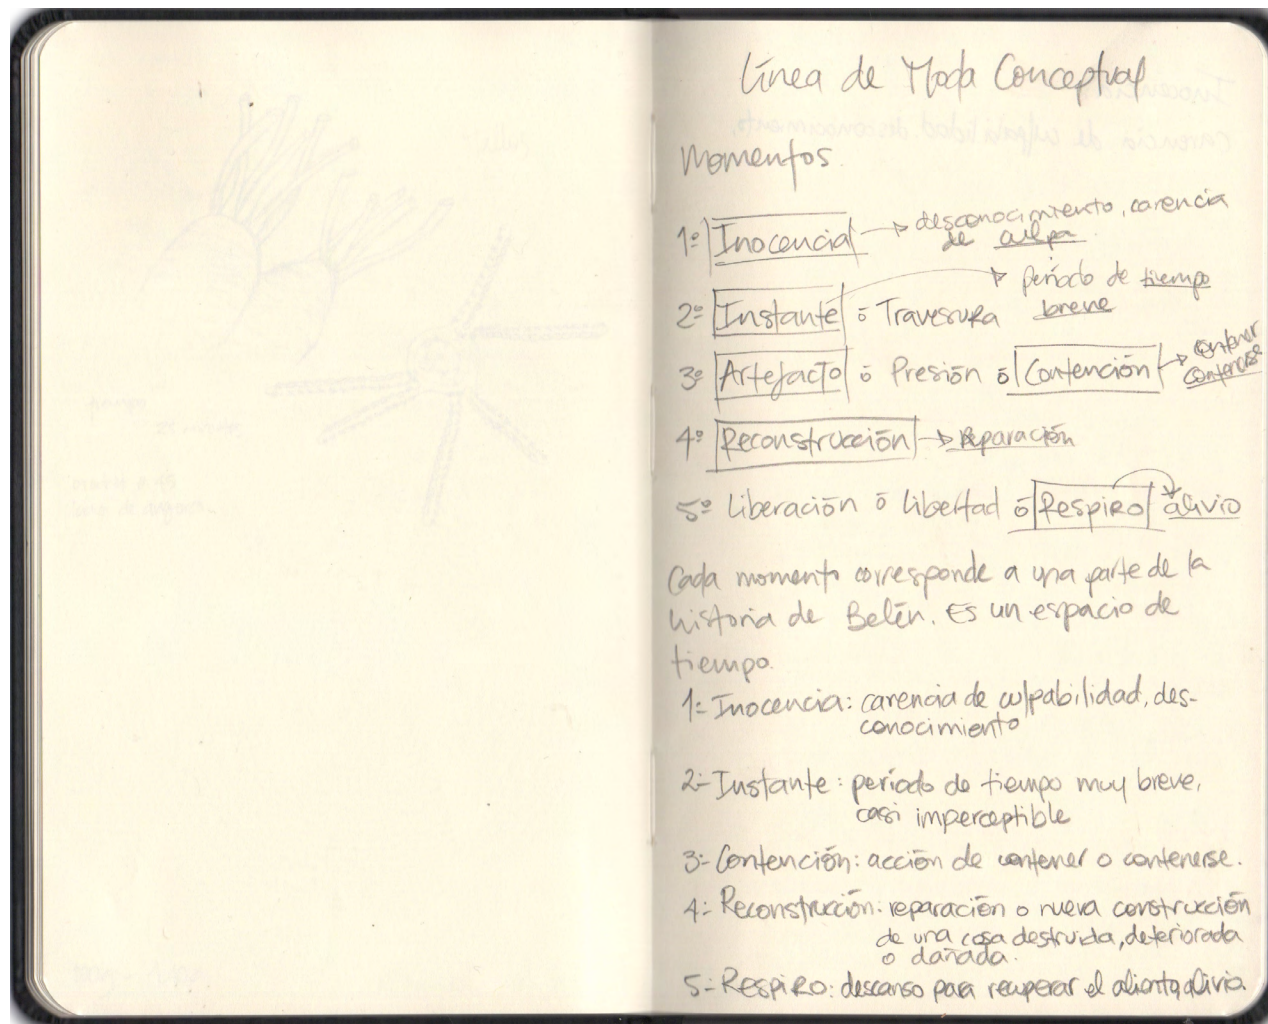 Línea de Moda Conceptual
Momentos.
1º Inocencia → desconocimiento, carencia
de culpa
2º Instante ó Travesura → período de tiempo
breve
3º Artefacto ó Presión ó Contención → contener
contenerse
4º Reconstrucción → reparación
5º Liberación ó libertad ó Respiro alivio
Cada momento corresponde a una parte de la
historia de Belén. Es un espacio de
tiempo.
1- Inocencia: carencia de culpabilidad, des-
conocimiento
2- Instante: período de tiempo muy breve,
casi imperceptible
3- Contención: acción de contener o contenerse.
4- Reconstrucción: reparación o nueva construcción
de una cosa destruida, deteriorada
o dañada.
5- Respiro: descanso para recuperar el aliento, alivio.